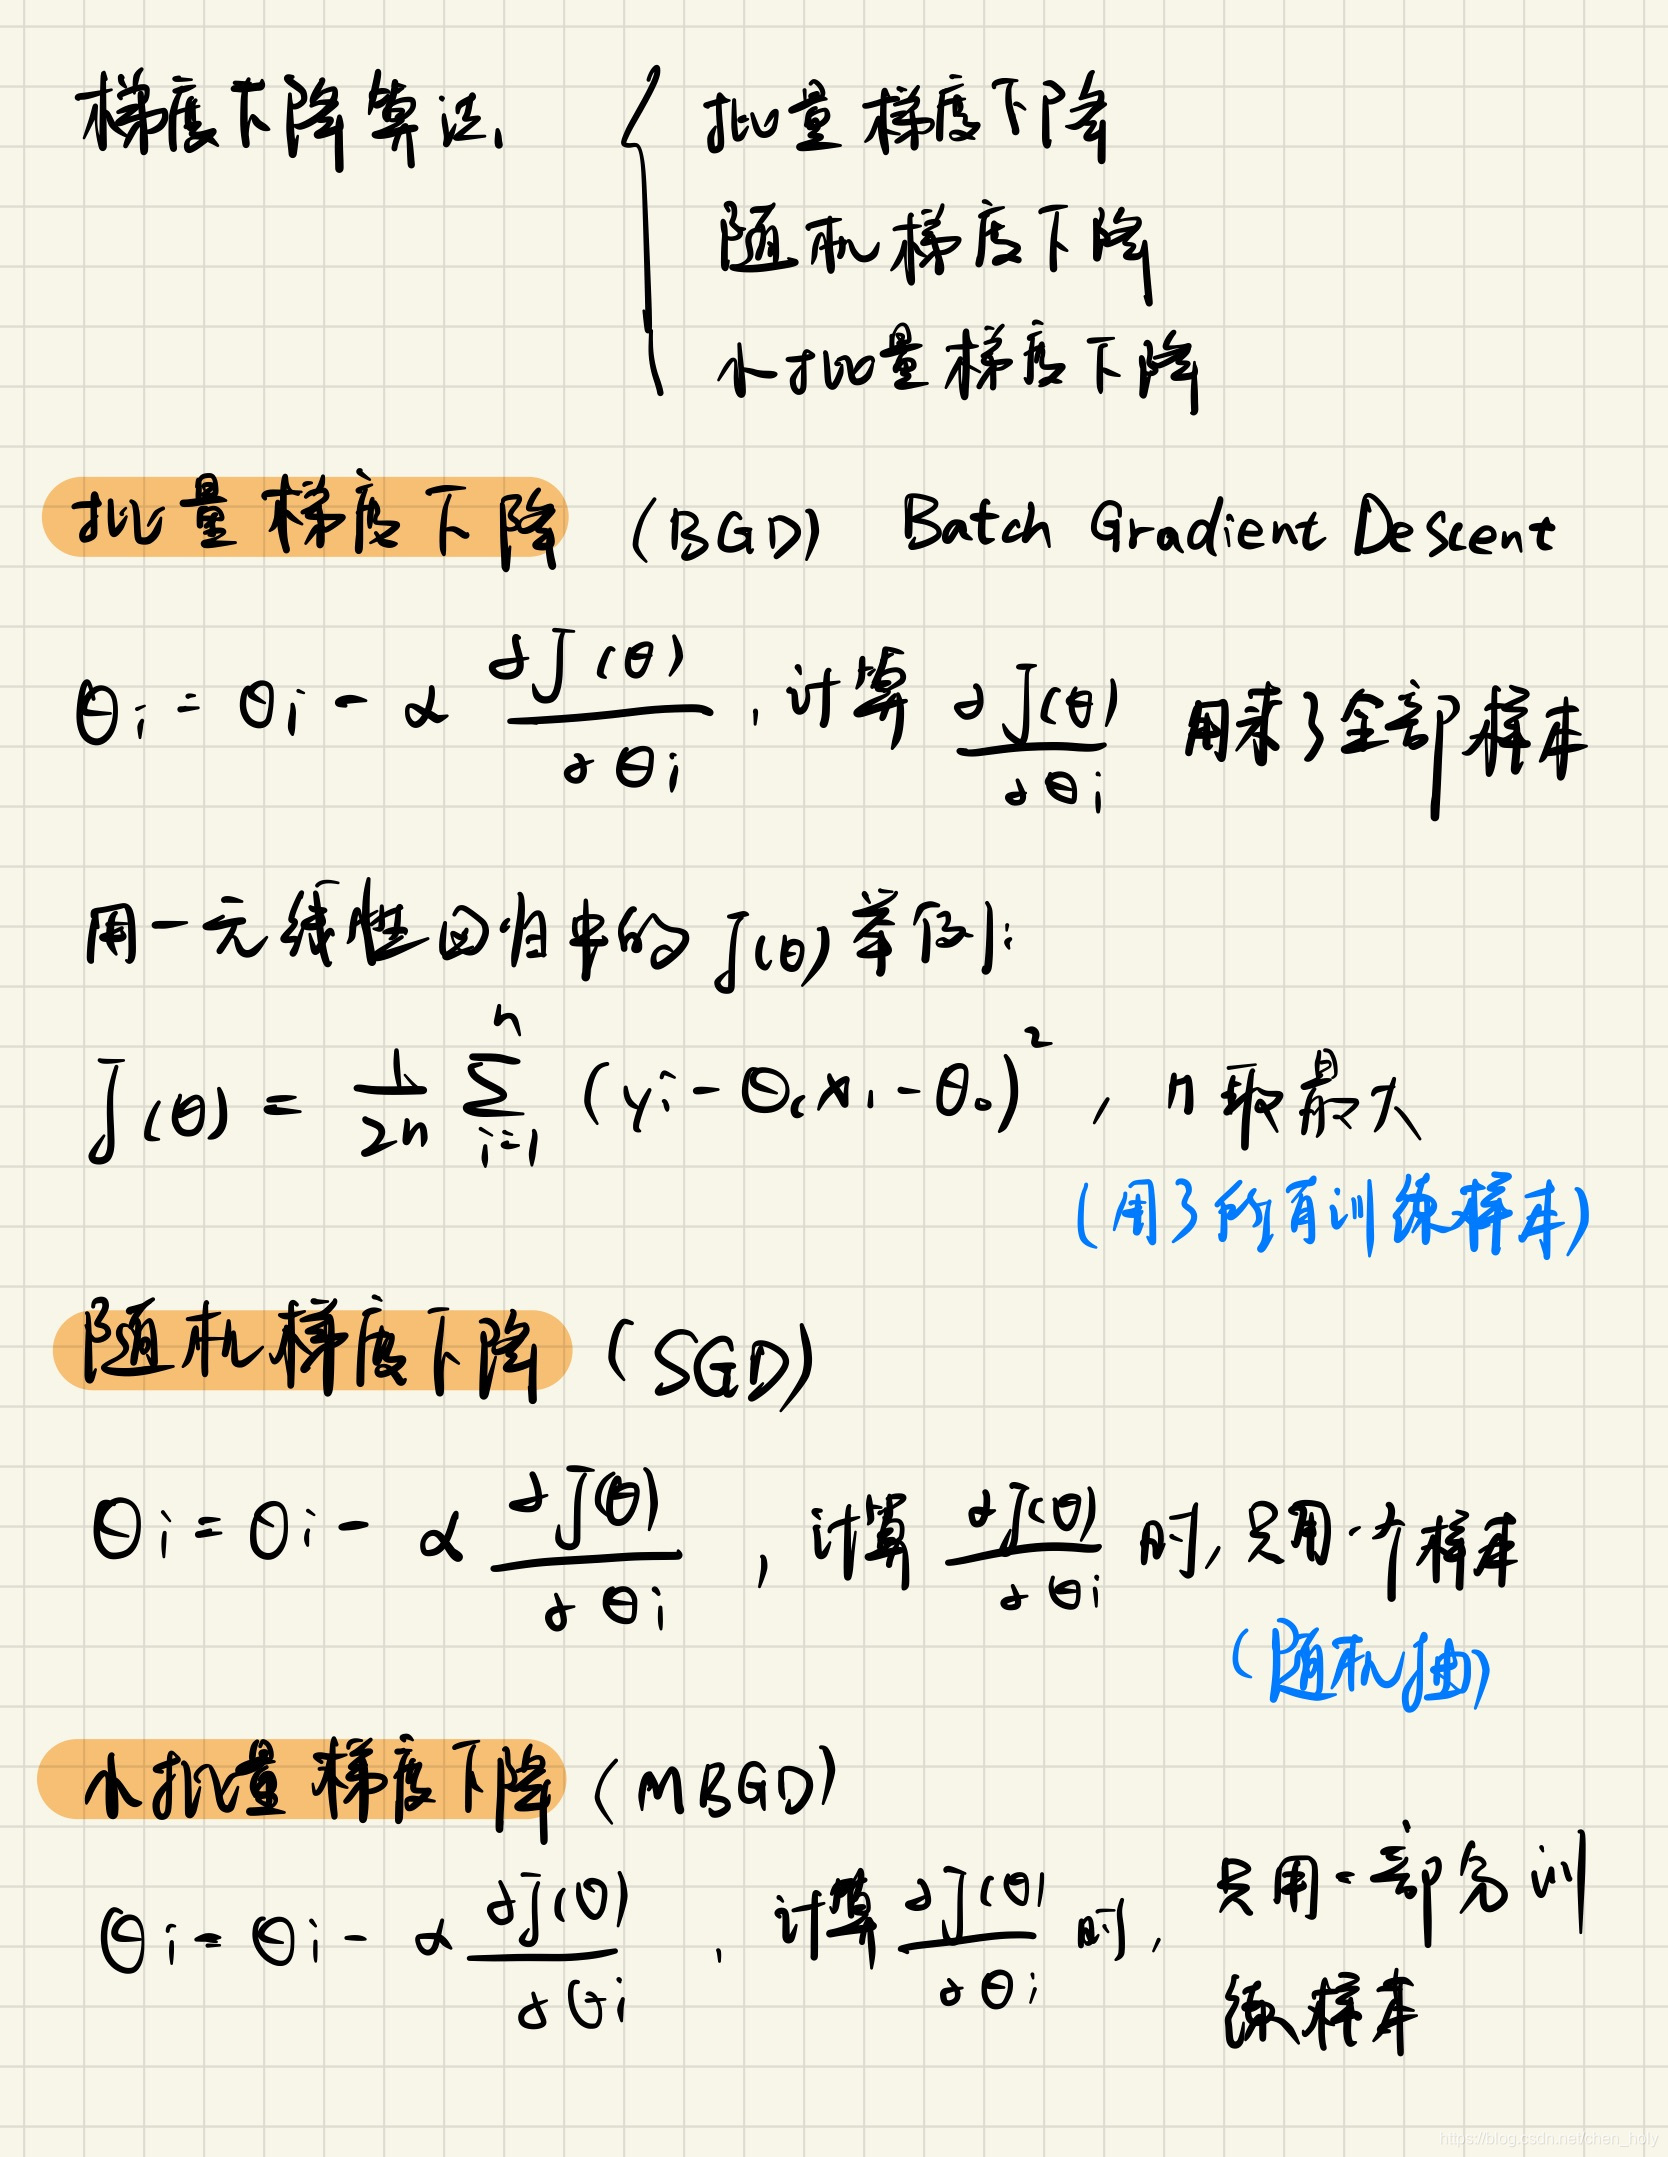 梯度下降算法 { 批量梯度下降
随机梯度下降
小批量梯度下降
批量梯度下降 (BGD) Batch Gradient Descent
θi = θi - α ∂J(θ)/∂θi , 计算 ∂J(θ)/∂θi 用来了全部样本
用一元线性回归中的 J(θ) 举例:
J(θ) = 1/2n ∑_{i=1}^{n} (yi - θ₁x₁ - θ₀)² , n取最大
(用了所有训练样本)
随机梯度下降 (SGD)
θi = θi - α ∂J(θ)/∂θi , 计算 ∂J(θ)/∂θi 时, 只用一个样本
(随机抽)
小批量梯度下降 (MBGD)
θi = θi - α ∂J(θ)/∂θi , 计算 ∂J(θ)/∂θi 时, 只用一部分训
练样本
https://blog.csdn.net/chen_holy